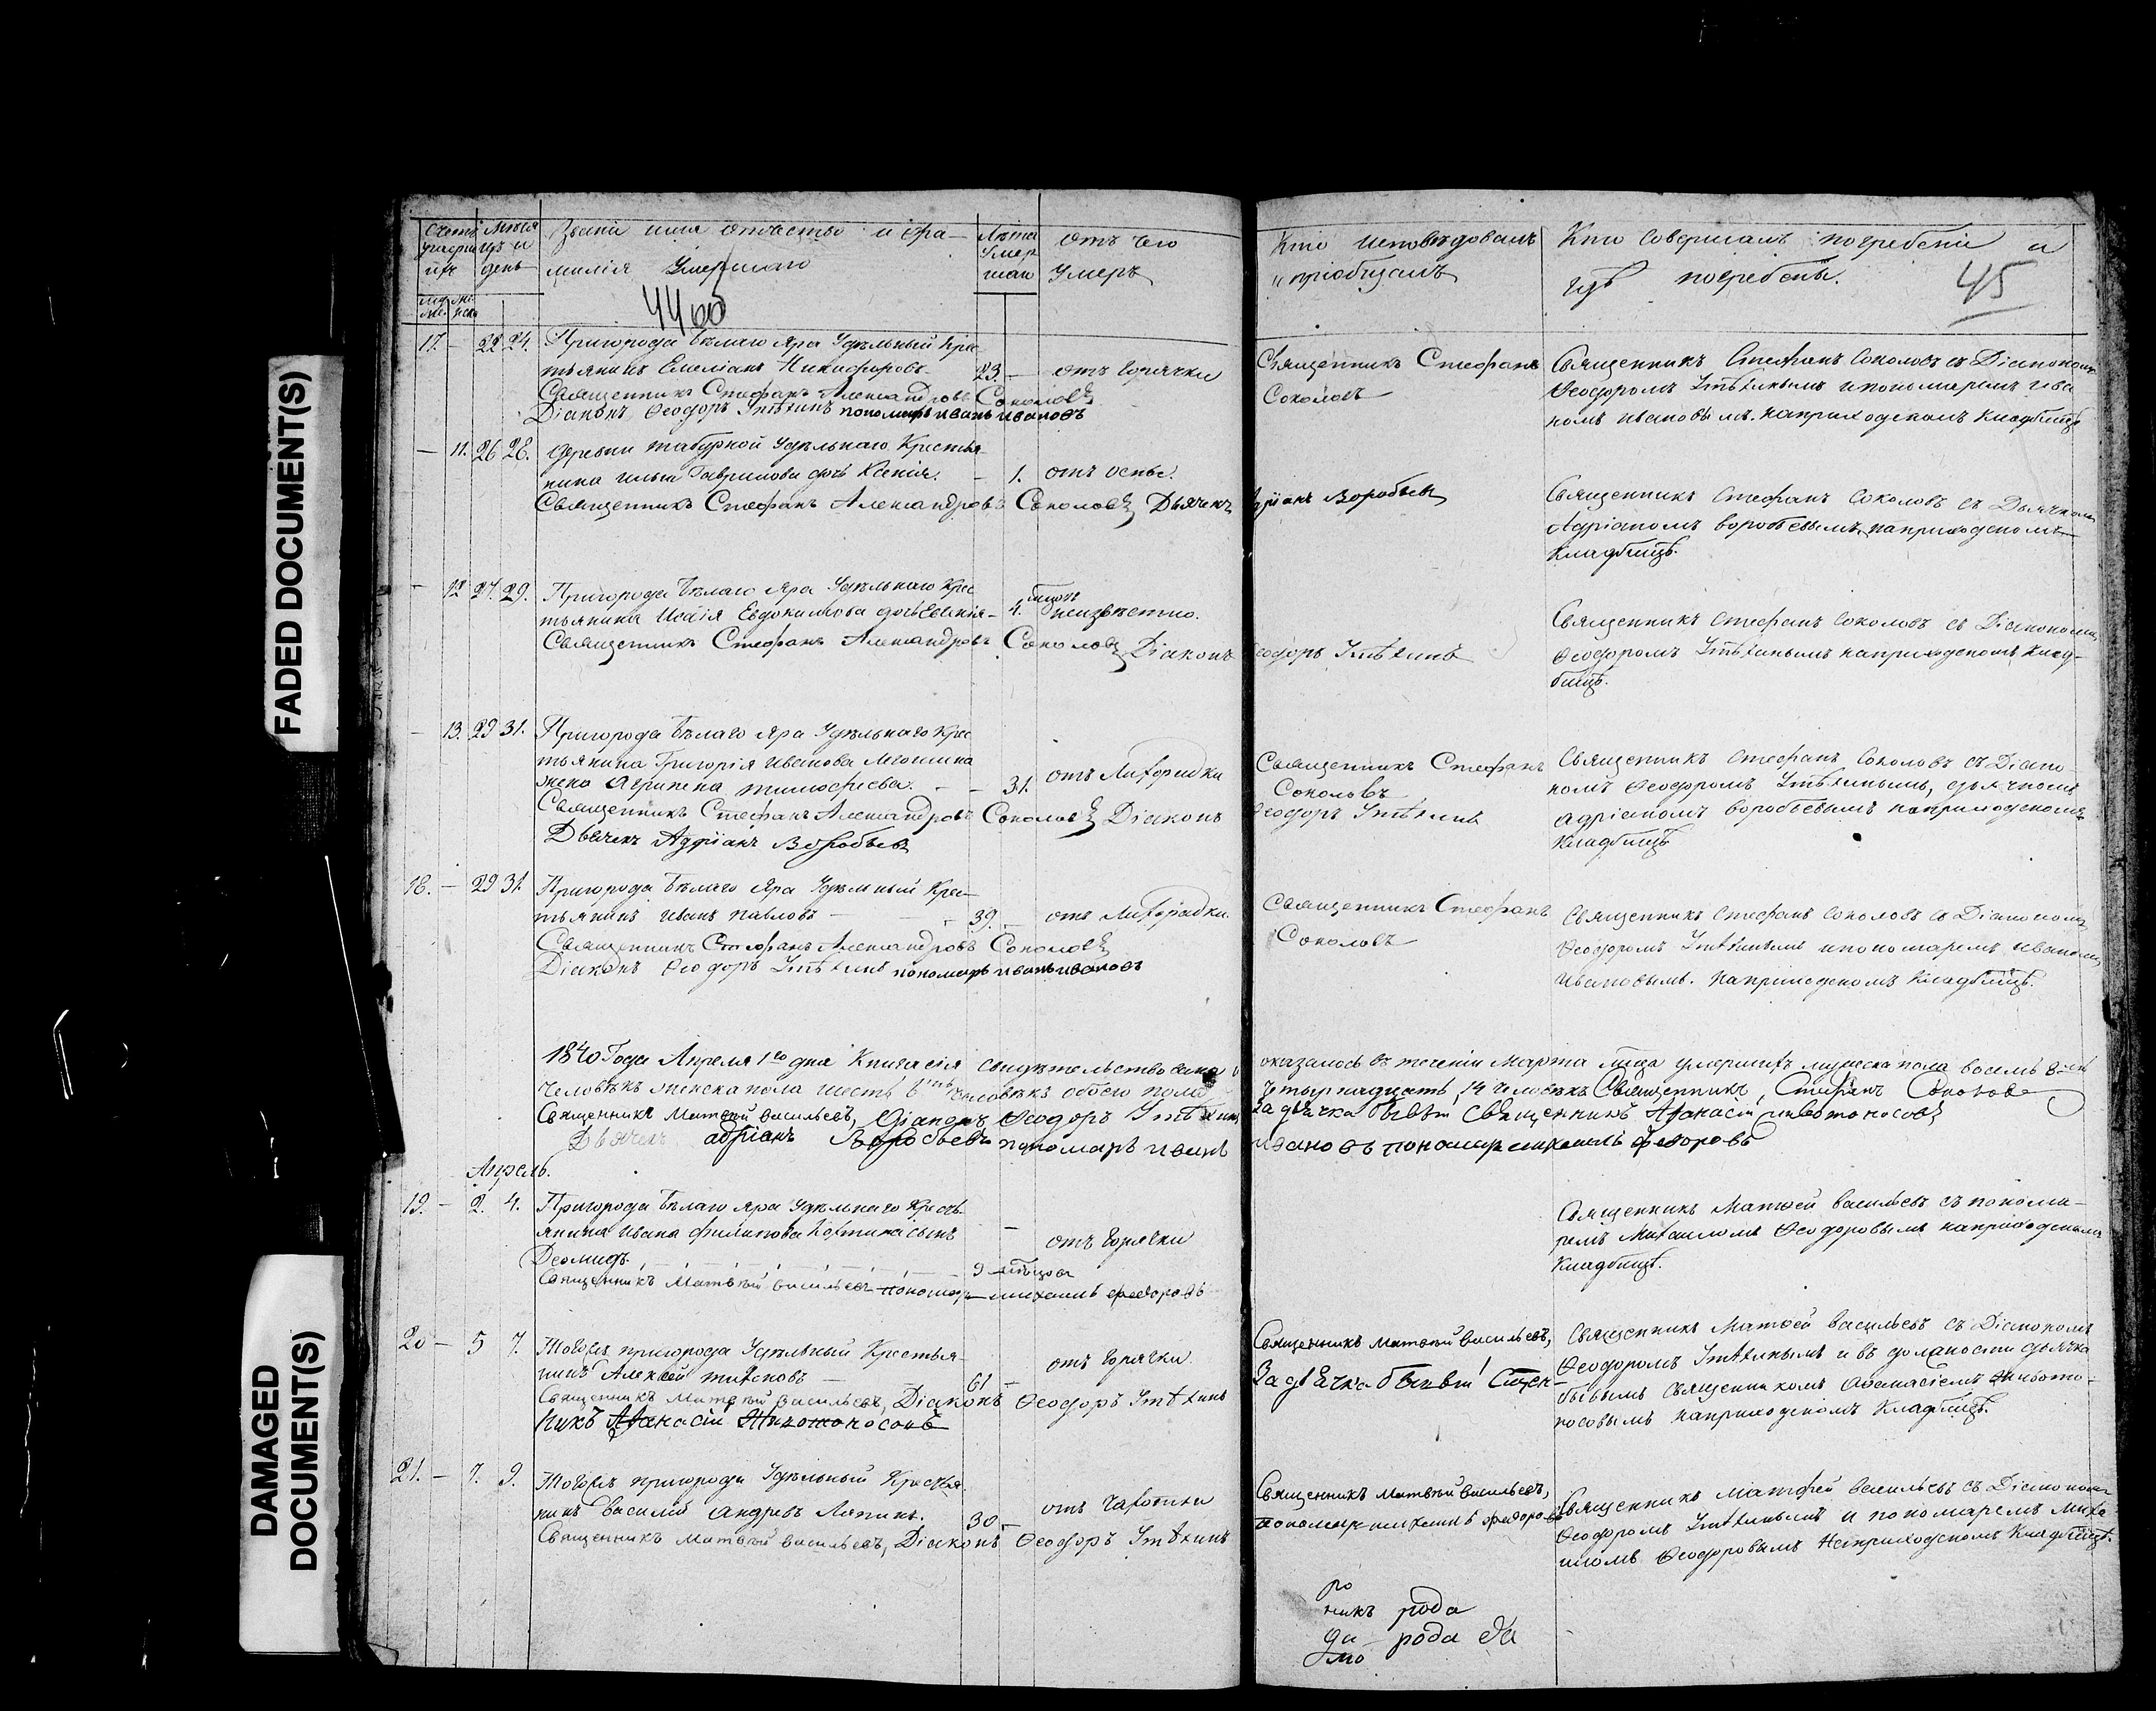 FADED DOCUMENT(S)
DAMAGED
DOCUMENT(S)
Счетъ
умерш
ихъ
муж
же
нска
Мѣся
цъ и
день
Званіе имя отчество и фа-
милія Умершаго
Лѣта
Умер
шаго
отъ чего
Умеръ
Кто исповѣдовалъ
и пріобщалъ
Кто Совершалъ погребеніе и
гдѣ погребены.
45
17. — 22 24. Пригорода Бѣлаго Яра Удѣльный Крес
тьянинъ Емеліанъ Никифоровъ 23. — отъ Горячки
Священникъ Стефанъ Александровъ Соколовъ
Діаконъ Ѳеодоръ пономарь иванъ ивановъ
Священникъ Стефанъ
Соколовъ
Священникъ Стефанъ Соколовъ съ Діакономъ
Ѳеодоромъ и пономаремъ ива
номъ ивановымъ. на приходскомъ Кладбищѣ
— 11. 26 28. Деревни Удѣльнаго Крестья
нина ильи Гаврилова дочь Ксенія. — 1. отъ оспы.
Священникъ Стефанъ Александровъ Соколовъ Дьячекъ Адріанъ Воробьевъ
Священникъ Стефанъ Соколовъ съ Дьячкомъ
Адріаномъ воробьевымъ на приходскомъ
Кладбищѣ.
— 12 27. 29. Пригорода Бѣлаго Яра Удѣльнаго Крес
тьянина Исаія Евдокимова дочь Евгенія — 4. неизвѣстно.
Священникъ Стефанъ Александровъ Соколовъ Діаконъ Ѳеодоръ
Священникъ Стефанъ Соколовъ съ Діакономъ
Ѳеодоромъ на приходскомъ Клад-
бищѣ.
— 13. 29 31. Пригорода Бѣлаго Яра Удѣльнаго Крес
тьянина Григорія Иванова
жена Агрипена тимофеева. — 31. отъ Лихорадки
Священникъ Стефанъ Александровъ Соколовъ Діаконъ Ѳеодоръ
Дьячекъ Адріанъ Воробьевъ
Священникъ Стефанъ
Соколовъ
Священникъ Стефанъ Соколовъ съ Діако-
номъ Ѳеодоромъ дьячкомъ
адріаномъ воробьевымъ на приходскомъ
Кладбищѣ
18. — 29 31. Пригорода Бѣлаго Яра Удѣльный Крес-
тьянинъ иванъ павловъ — 39. — отъ Лихорадки.
Священникъ Стефанъ Александровъ Соколовъ
Діаконъ Ѳеодоръ пономарь иванъ ивановъ
Священникъ Стефанъ
Соколовъ
Священникъ Стефанъ Соколовъ съ Діакономъ
Ѳеодоромъ и пономаремъ иваномъ
ивановымъ. на приходскомъ Кладбищѣ.
1840 Года Апреля 1го дня Книга сія свидѣтельствована и оказалось въ теченіи Марта мѣсяца умершихъ мужеска пола восемь
человѣкъ женска пола шесть человѣкъ обоего пола четырнадцать, 14 человѣкъ Священникъ, Стефанъ Соколовъ
Священникъ Матвѣй васильевъ, Діаконъ Ѳеодоръ За дьячка бывый Священникъ Афанасій животоносовъ
Дьячекъ адріанъ Воробьевъ пономарь иванъ ивановъ пономарь михаилъ федоровъ
Апрель.
19. — 2. 4. Пригорода Бѣлаго Яра Удѣльнаго Кресть-
янина ивана филипова сынъ — отъ Горячки
Деомидъ 9
Священникъ Матвѣй васильевъ пономарь михаилъ федоровъ
Священникъ Матѳей васильевъ съ понома-
ремъ Михаиломъ Ѳеодоровымъ на приходскомъ
Кладбищѣ.
20 — 5 7. Тогожъ пригорода Удѣльный Крестья-
нинъ Алексѣй 61 — отъ Горячки.
Священникъ Матвѣй васильевъ, Діаконъ Ѳеодоръ
Священникъ Матвѣй васильевъ,
За дьячка бывый Свщен-
никъ Афанасій Животоносовъ
Священникъ Матѳей васильевъ съ Діакономъ
Ѳеодоромъ и въ должности дьячка
бывымъ Священникомъ Афанасіемъ живото-
носовымъ на приходскомъ Кладбищѣ.
21. — 7. 9. Тогожъ пригорода Удѣльный Крестья
нинъ василій Андреевъ Лапинъ. 30 — отъ Чахотки
Священникъ Матвѣй васильевъ, Діаконъ Ѳеодоръ
Священникъ Матвѣй васильевъ,
пономарь михаилъ федоровъ
Священникъ Матѳей васильевъ съ Діакономъ
Ѳеодоромъ и пономаремъ Миха-
иломъ Ѳеодоровымъ на приходскомъ Кладбищѣ.
ро
никъ рода
да — рода да
мо